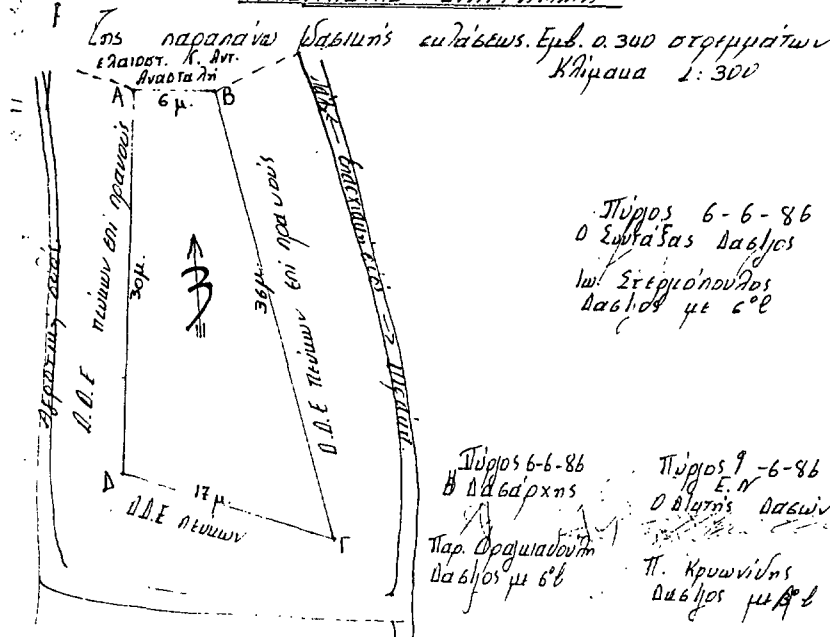 Της παραπάνω δασικής εκτάσεως. Εμβ. 0.340 στρεμμάτων
Κλίμακα 1:300
ελαιοστ. Κ. Αντ.
Αναστα λή
Α 6 μ. Β
Αγροτική οδός
Δ.Δ.Ε πεύκων επί πρανούς
30μ.
36μ.
Δ.Δ.Ε Πεύκων επί πρανούς
Δ
17 μ.
Γ
Δ.Δ.Ε πεύκων
Πύργος 6-6-86
Ο Συντάξας Δασ/γος
Ιω. Στεργιόπουλος
Δασ/γος με 6°β
Πύργος 6-6-86
Ο Δασάρχης
Δασ/γος με 6°β
Πύργος 9-6-86
Ε.Ν
Ο Δ/ντής Δασών
Π. Κρυωνίδης
Δασ/γος με β